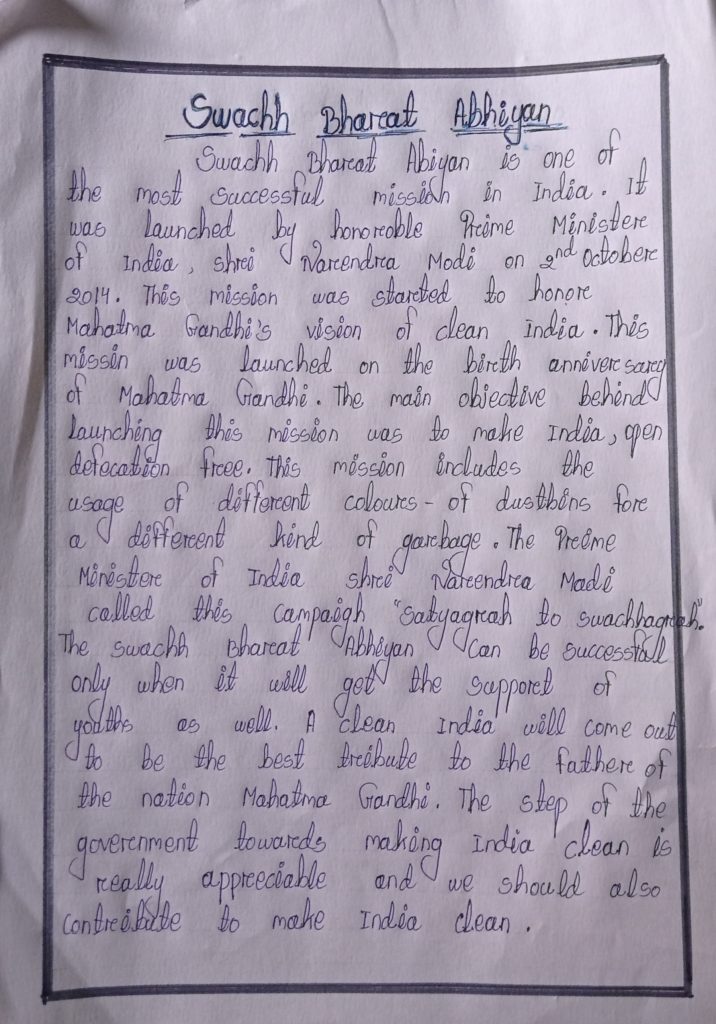 Swachh Bharat Abhiyan
Swachh Bharat Abiyan is one of
the most successful mission in India. It
was launched by honorable Prime Minister
of India, shri Narendra Modi on 2nd October
2014. This mission was started to honor
Mahatma Gandhi's vision of clean India. This
missin was launched on the birth anniversary
of Mahatma Gandhi. The main objective behind
launching this mission was to make India, open
defecation free. This mission includes the
usage of different colours - of dustbins for
a different kind of garbage. The Prime
Minister of India shri Narendra Modi
called this campaigh "Satyagrah to swachhagrah".
The swachh Bharat Abhiyan can be successfull
only when it will get the support of
youths as well. A clean India will come out
to be the best tribute to the father of
the nation Mahatma Gandhi. The step of the
government towards making India clean is
really appreciable and we should also
contribute to make India clean.